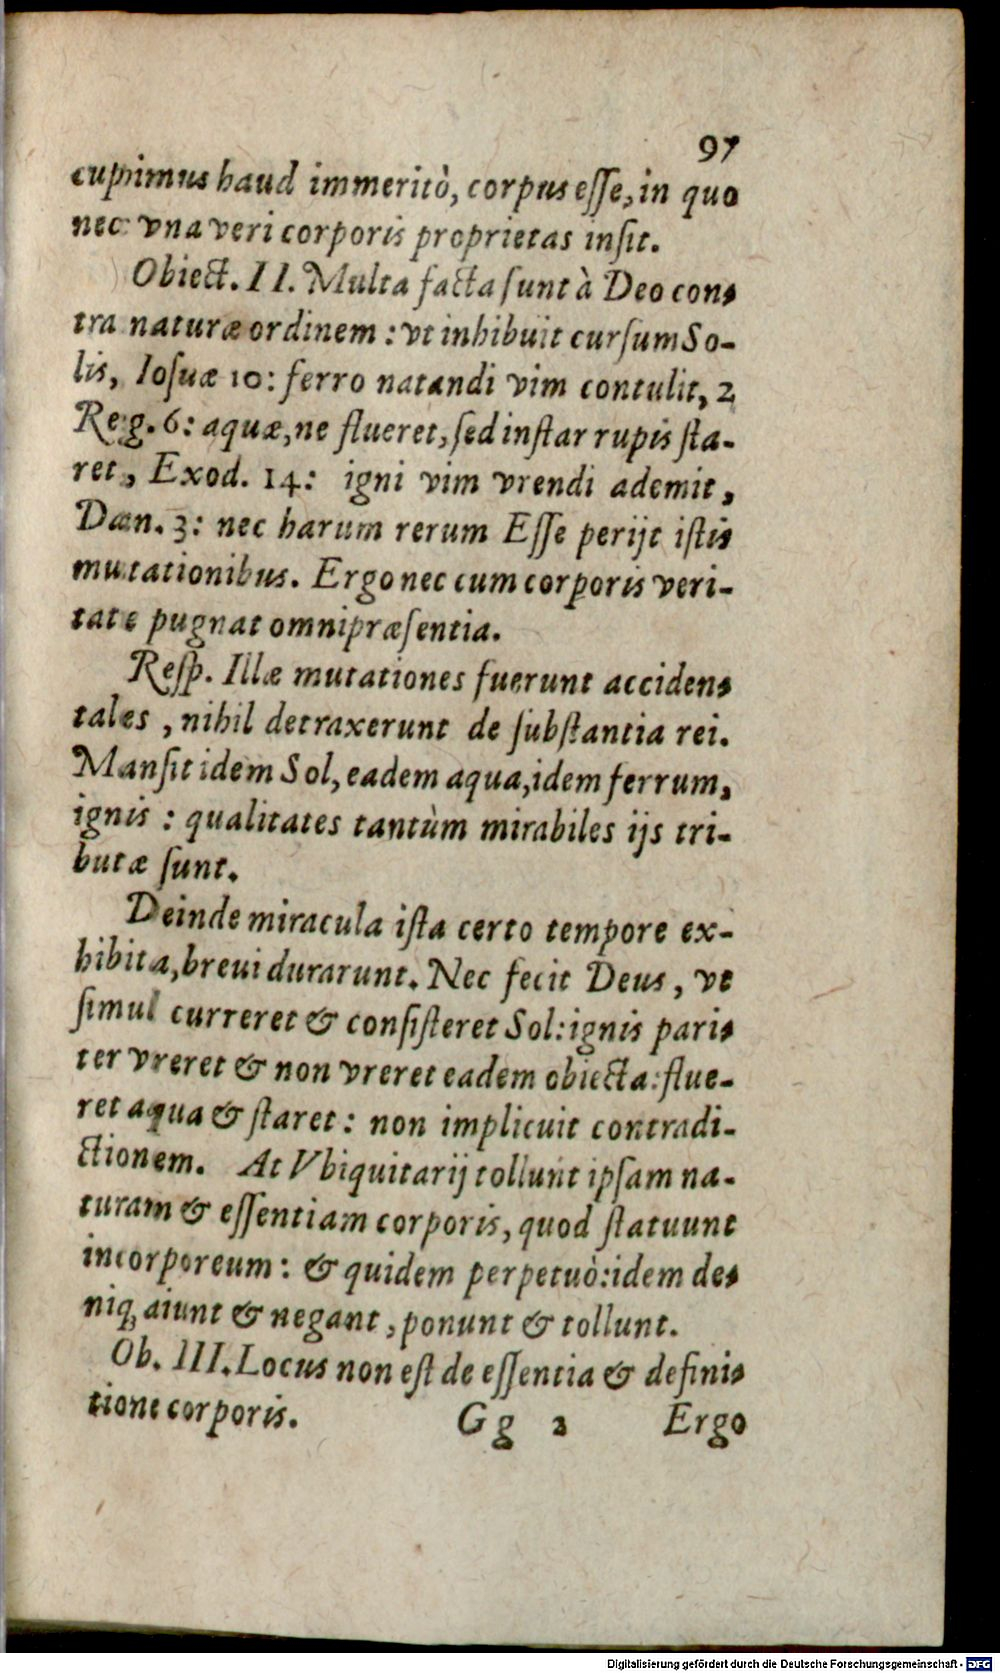 97
cupimus haud immeritò, corpus esse, in quo
nec vna veri corporis proprietas insit.
Obiect. II. Multa facta sunt à Deo con-
tra naturæ ordinem : vt inhibuit cursum So-
lis, Iosuæ 10: ferro natandi vim contulit, 2
Reg. 6: aquæ, ne flueret, sed instar rupis sta-
ret, Exod. 14: igni vim vrendi ademit,
Dan. 3: nec harum rerum Esse perijt istis
mutationibus. Ergo nec cum corporis veri-
tate pugnat omnipræsentia.
Resp. Illæ mutationes fuerunt acciden-
tales, nihil detraxerunt de substantia rei.
Mansit idem Sol, eadem aqua, idem ferrum,
ignis : qualitates tantùm mirabiles ijs tri-
butæ sunt.
Deinde miracula ista certo tempore ex-
hibita, breui durarunt. Nec fecit Deus, vt
simul curreret & consisteret Sol: ignis pari-
ter vreret & non vreret eadem obiecta: flue-
ret aqua & staret : non implicuit contradi-
ctionem. At Vbiquitarij tollunt ipsam na-
turam & essentiam corporis, quod statuunt
incorporeum : & quidem perpetuò: idem de-
niq; aiunt & negant, ponunt & tollunt.
Ob. III. Locus non est de essentia & defini-
tione corporis.
Gg 2 Ergo
Digitalisierung gefördert durch die Deutsche Forschungsgemeinschaft - DFG